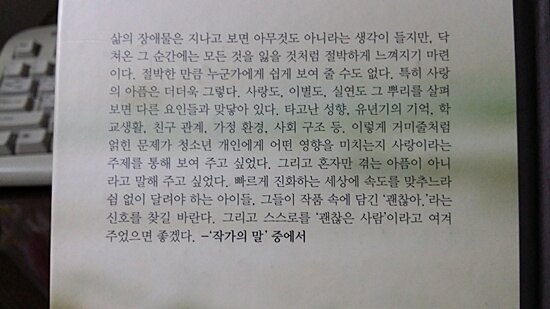 삶의 장애물은 지나고 보면 아무것도 아니라는 생각이 들지만, 닥
쳐온 그 순간에는 모든 것을 잃을 것처럼 절박하게 느껴지기 마련
이다. 절박한 만큼 누군가에게 쉽게 보여 줄 수도 없다. 특히 사랑
의 아픔은 더더욱 그렇다. 사랑도, 이별도, 실연도 그 뿌리를 살펴
보면 다른 요인들과 맞닿아 있다. 타고난 성향, 유년기의 기억, 학
교생활, 친구 관계, 가정 환경, 사회 구조 등. 이렇게 거미줄처럼
얽힌 문제가 청소년 개인에게 어떤 영향을 미치는지 사랑이라는
주제를 통해 보여 주고 싶었다. 그리고 혼자만 겪는 아픔이 아니
라고 말해 주고 싶었다. 빠르게 진화하는 세상에 속도를 맞추느라
쉼 없이 달려야 하는 아이들, 그들이 작품 속에 담긴 ‘괜찮아.’라는
신호를 찾길 바란다. 그리고 스스로를 ‘괜찮은 사람’이라고 여겨
주었으면 좋겠다. -‘작가의 말’ 중에서